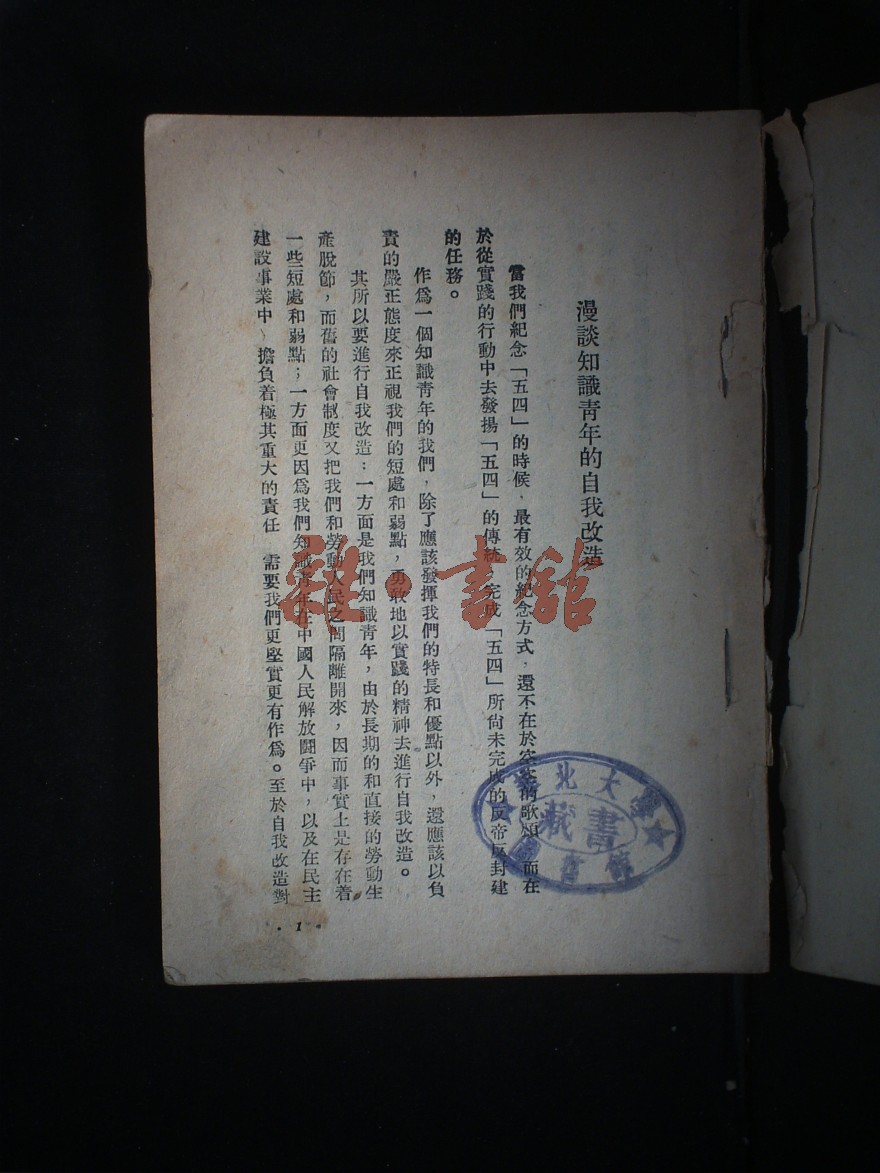 漫談知識青年的自我改造
當我們紀念「五四」的時候，最有效的紀念方式，還不在於空空的歌頌，而在
於從實踐的行動中去發揚「五四」的傳統，完成「五四」所尙未完成的反帝反封建
的任務。
作爲一個知識青年的我們，除了應該發揮我們的特長和優點以外，還應該以負
責的嚴正態度來正視我們的短處和弱點，勇敢地以實踐的精神去進行自我改造。
其所以要進行自我改造：一方面是我們知識青年，由於長期的和直接的勞動生
產脫節，而舊的社會制度又把我們和勞動人民之間隔離開來，因而事實上是存在着
一些短處和弱點；一方面更因爲我們知識青年在中國人民解放鬪爭中，以及在民主
建設事業中，擔負着極其重大的責任　需要我們更堅實更有作爲。至於自我改造對
·1·
雜·書館
北大學
藏書
圖書館